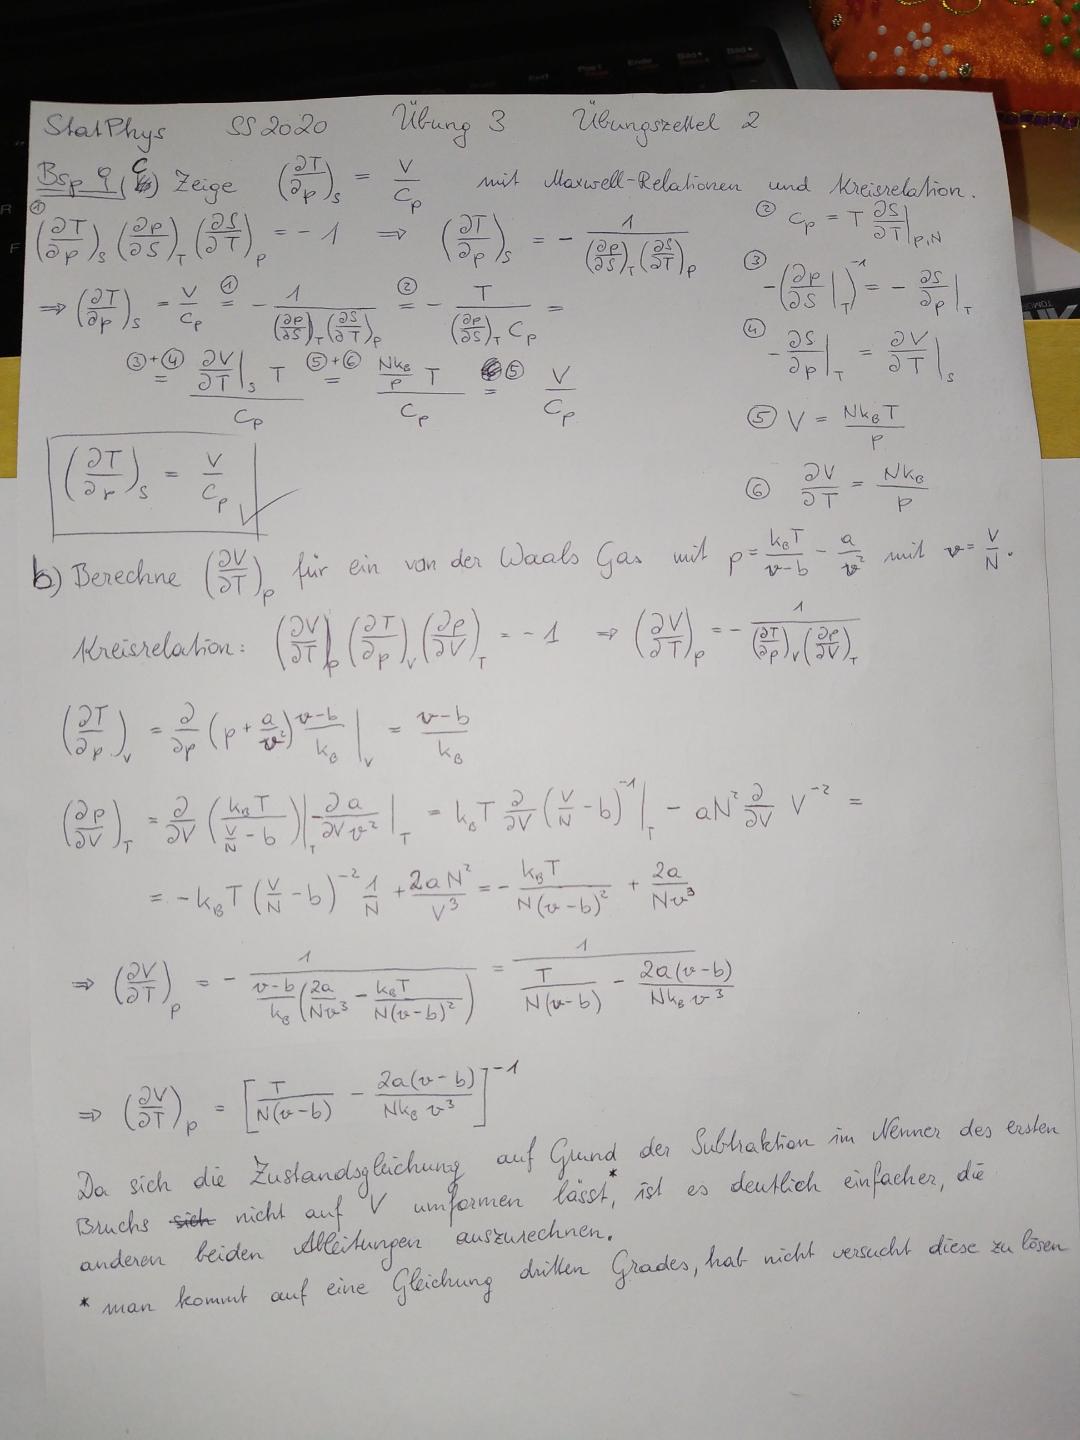 StatPhys SS2020 Übung 3 Übungszettel 2
Bsp 9 (c) Zeige (∂T/∂p)_S = V/C_p mit Maxwell-Relationen und Kreisrelation.
① (∂T/∂p)_S (∂p/∂S)_T (∂S/∂T)_p = -1 ⇒ (∂T/∂p)_S = - 1/((∂p/∂S)_T (∂S/∂T)_p)
② C_p = T ∂S/∂T|_p,N
③ -(∂p/∂S|_T)^-1 = - ∂S/∂p|_T
⇒ (∂T/∂p)_S = V/C_p ①= - 1/((∂p/∂S)_T (∂S/∂T)_p) ②= - T/((∂p/∂S)_T C_p) =
④ - ∂S/∂p|_T = ∂V/∂T|_S
③+④ = (∂V/∂T|_S T)/C_p ⑤+⑥ = (Nk_B/p T)/C_p ⑤ = V/C_p
⑤ V = Nk_BT/p
(∂T/∂p)_S = V/C_p ✓
⑥ ∂V/∂T = Nk_B/p
b) Berechne (∂V/∂T)_p für ein van der Waals Gas mit p = k_BT/(v-b) - a/v² mit v = V/N.
Kreisrelation: (∂V/∂T)_p (∂T/∂p)_V (∂p/∂V)_T = -1 ⇒ (∂V/∂T)_p = - 1/((∂T/∂p)_V (∂p/∂V)_T)
(∂T/∂p)_V = ∂/∂p (p + a/v²) (v-b)/k_B |_V = (v-b)/k_B
(∂p/∂V)_T = ∂/∂V (k_BT/(V/N - b))|_T - ∂/∂V a/v² |_T = k_BT ∂/∂V (V/N - b)^-1|_T - aN² ∂/∂V V^-2 =
= -k_BT (V/N - b)^-2 1/N + 2aN²/V³ = - k_BT/(N(v-b)²) + 2a/(Nv³)
⇒ (∂V/∂T)_p = - 1/((v-b)/k_B (2a/(Nv³) - k_BT/(N(v-b)²))) = 1/(T/(N(v-b)) - 2a(v-b)/(Nk_B v³))
⇒ (∂V/∂T)_p = [T/(N(v-b)) - 2a(v-b)/(Nk_B v³)]^-1
Da sich die Zustandsgleichung auf Grund der Subtraktion im Nenner des ersten
Bruchs sich nicht auf V umformen lässt*, ist es deutlich einfacher, die
anderen beiden Ableitungen auszurechnen.
* man kommt auf eine Gleichung dritten Grades, hab nicht versucht diese zu lösen